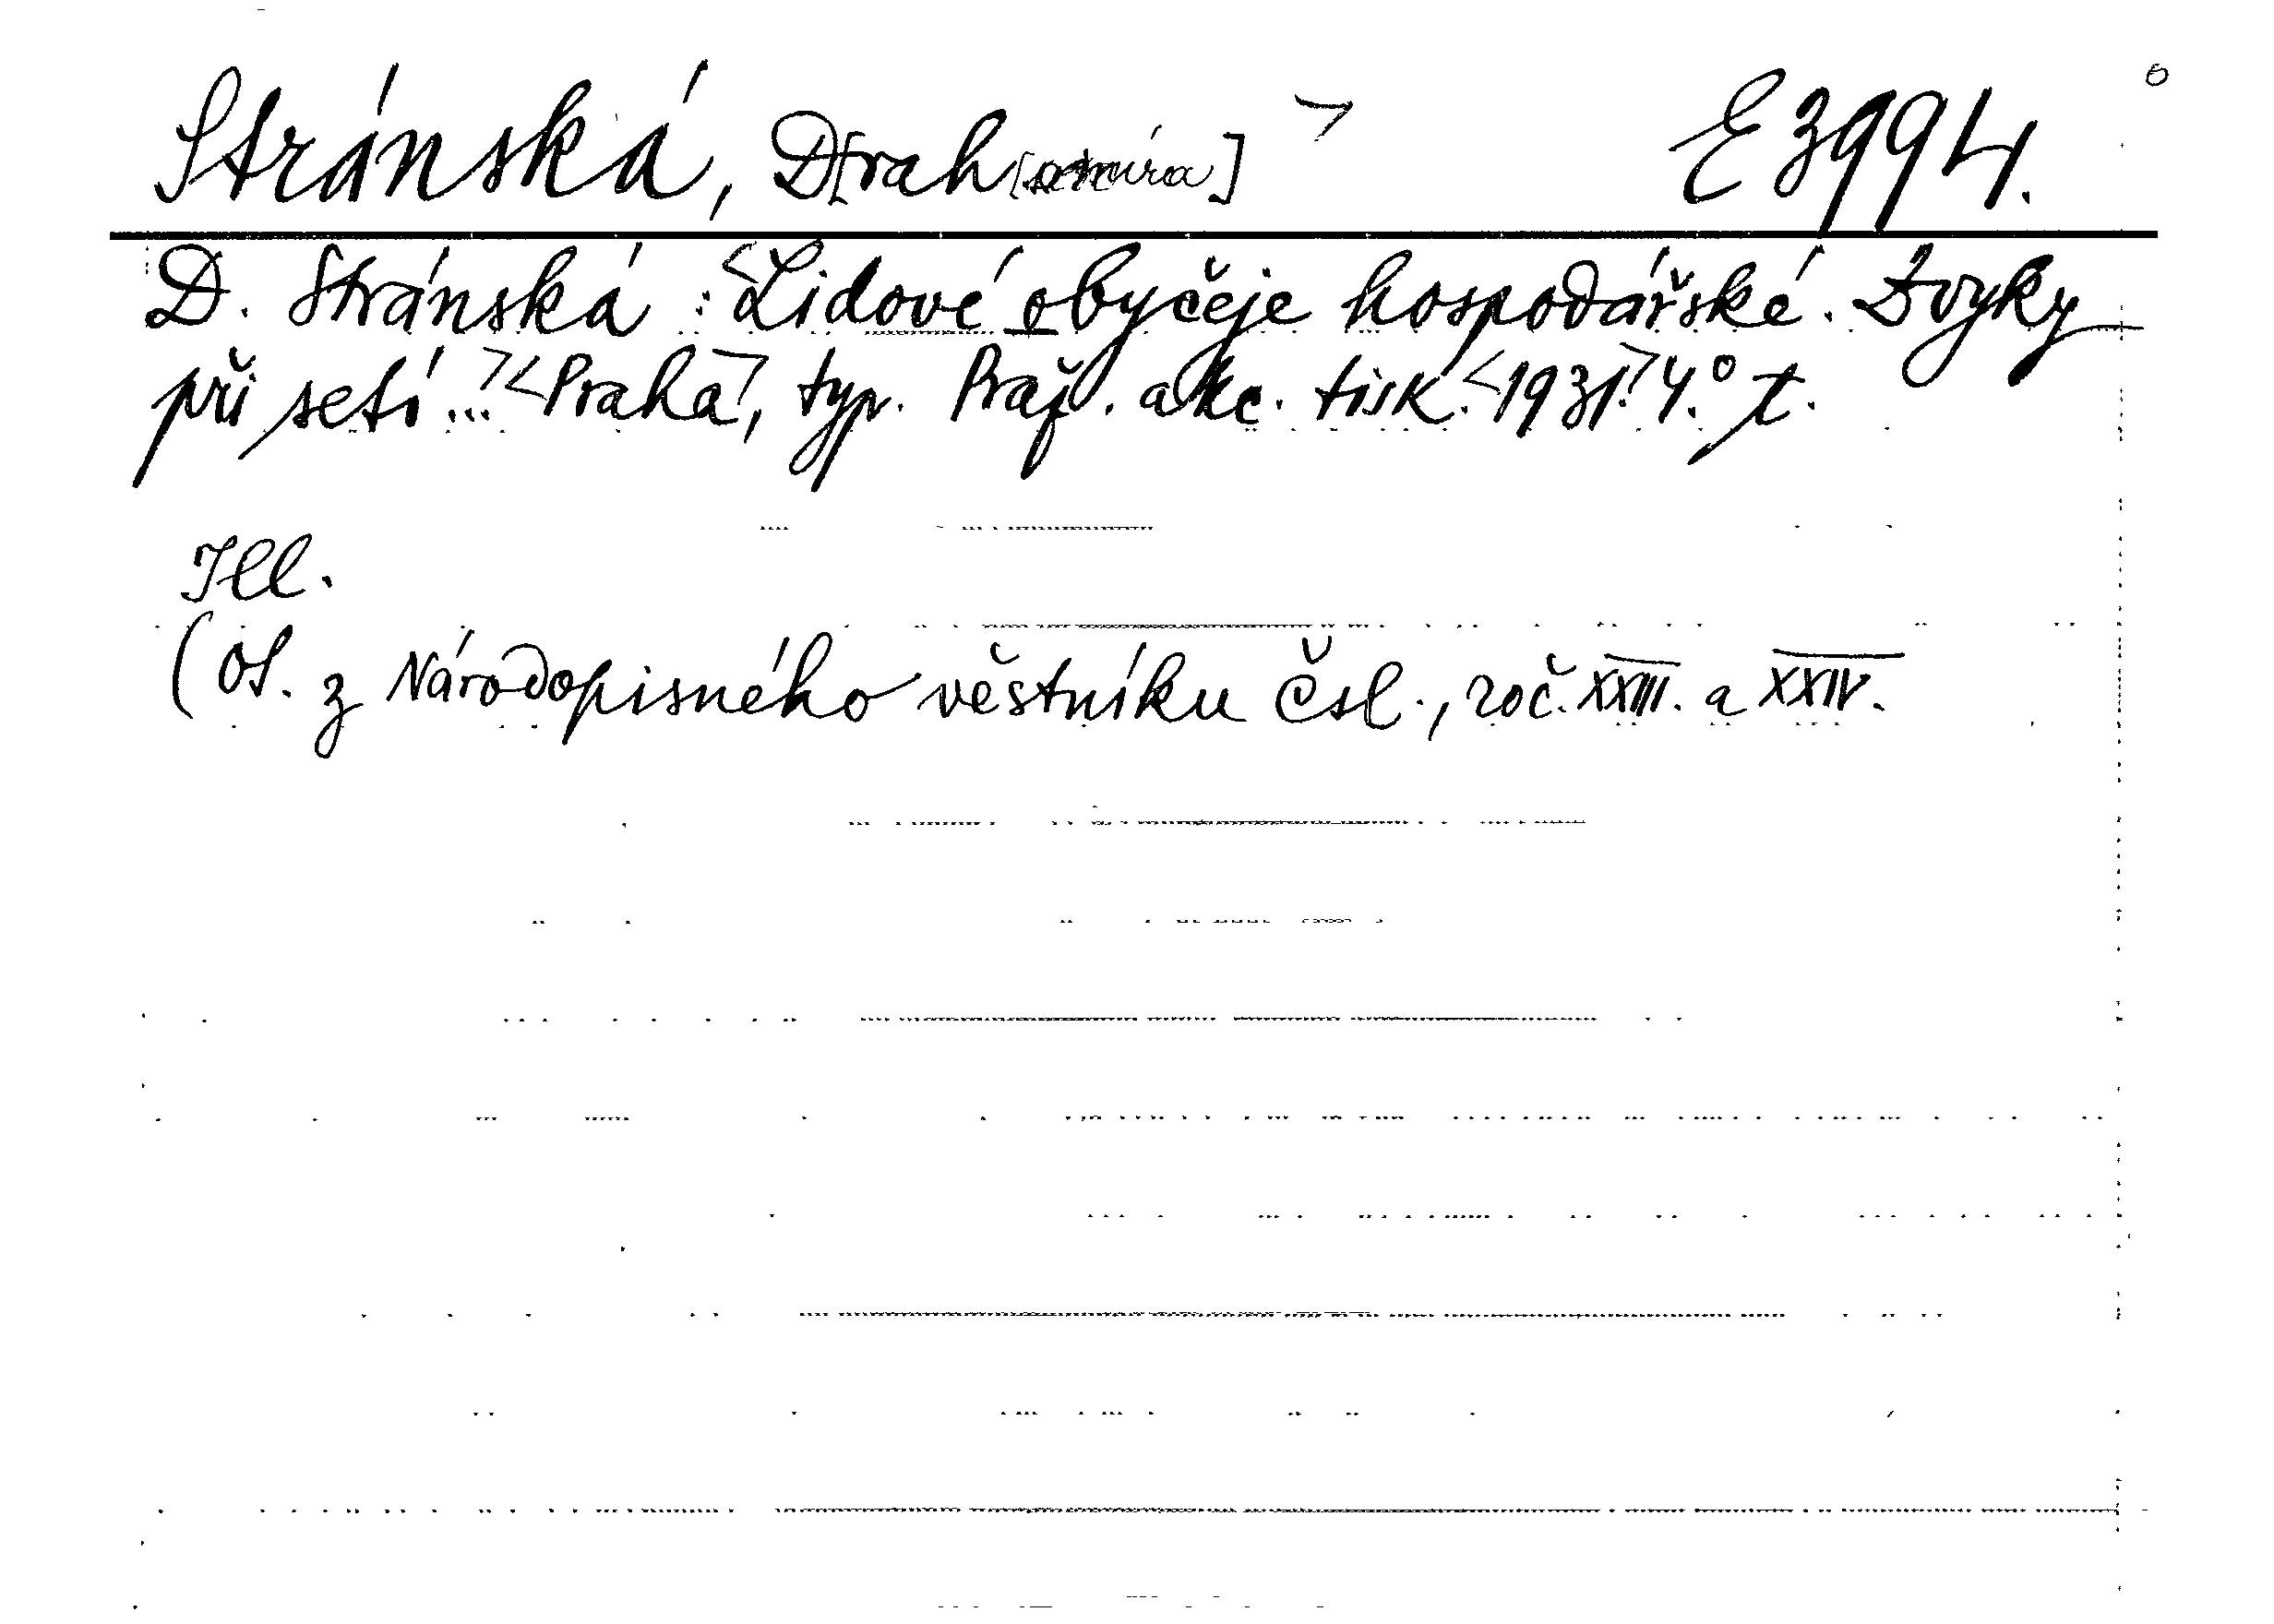 Stránská, D[rah[omíra] E 3994.
D. Stránská : <Lidové obyčeje hospodářské. Zvyky
při setí ...> <Praha>, typ. Praž. akc. tisk. <1931.> 4.° t.
Ill.
(Ot. z Národopisného věstníku čsl., roč. XXIII. a XXIV.